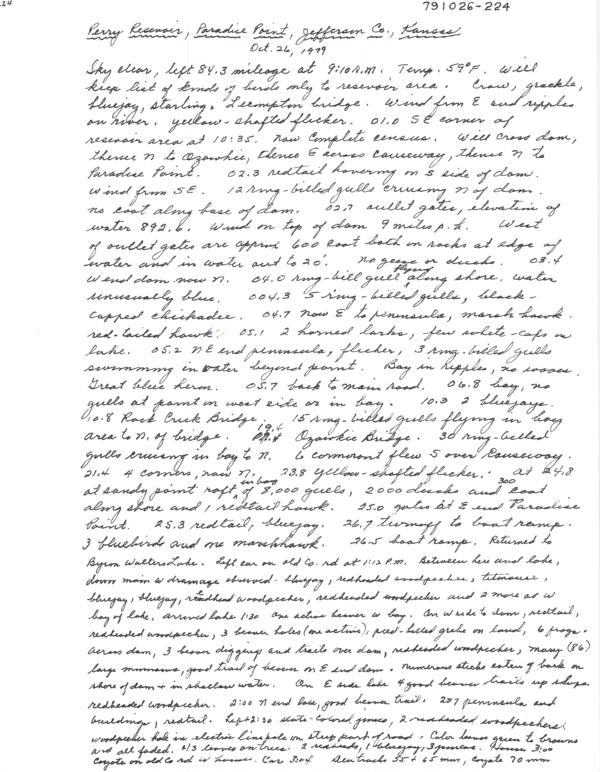 24
791026-224
Perry Reservoir, Paradise Point, Jefferson Co., Kansas
Oct. 26, 1979
Sky clear, left 84.3 mileage at 9:10 A.M. Temp. 59°F. Will
keep list of kinds of birds only to reservoir area. Crow, grackle,
bluejay, starling. Lecompton bridge. Wind from E and ripples
on river. yellow-shafted flicker. 01.0 SE corner of
reservoir area at 10:35. Now complete census. Will cross dam,
thence N to Ozawkie, thence E across causeway, thence N to
Paradise Point. 02.3 redtail hovering on S side of dam.
Wind from SE. 12 ring-billed gulls cruising N of dam.
no coot along base of dam. 02.7 outlet gates, elevation of
water 892.6. Wind on top of dam 9 miles p.h. West
of outlet gates are approx 600 coot both on rocks at edge of
water and in water out to 20'. no geese or ducks. 03.4
W end dam now N. 04.0 ring-bill gull flying along shore. water
unusually blue. 004.3 5 ring-billed gulls, black-
capped chickadee. 04.7 now E to peninsula, marsh hawk
red-tailed hawk. 05.1 2 horned larks, few white-caps on
lake. 05.2 NE end peninsula, flicker, 3 ring-billed gulls
swimming in water beyond point. Bay in ripples, no waves.
Great blue heron. 05.7 back to main road. 06.8 bay, no
gulls at point on west side or in bay. 10.3 2 bluejays.
10.8 Rock Creek Bridge. 15 ring-billed gulls flying in bay
area to N. of bridge. 19.4 Ozawkie Bridge. 30 ring-billed
gulls cruising in bay to N. 6 cormorant flew S over causeway.
21.4 4 corners, now N. 23.8 yellow-shafted flicker. At 24.8
at sandy point raft in bay of 8,000 gulls, 2000 ducks and 300 coot
along shore and 1 redtail hawk. 25.0 gates at E end Paradise
Point. 25.3 redtail, bluejay. 26.7 turnoff to boat ramp.
3 bluebirds and one marshhawk. 26.5 boat ramp. Returned to
Byron Walters Lake. Left car on old Co. rd at 1:12 P.M. Between here and lake,
down main W drainage observed - bluejay, redheaded woodpecker, titmouse,
bluejay, bluejay, redhead woodpecker, redheaded woodpecker and 2 more at W
bay of lake, arrived lake 1:30 one active beaver W bay. On W side to dam, redtail,
redheaded woodpecker, 3 beaver holes (one active), pied-billed grebe on pond, 6 frogs.
Across dam, 3 beaver diggings and trails over dam, redheaded woodpecker, many (86)
large minnows, good trail of beaver on E end dam. Numerous sticks eaten of bark on
shore of dam + in shallow water. On E side lake 4 good beaver trails up slope
redheaded woodpecker. 2:00 N end lake, good beaver trail. 207 peninsula and
building, redtail. Left 2:30 slate-colored juncos, 2 redheaded woodpeckers,
woodpecker hole in electric line pole on steep part of road. Color leaves green to browns
and all faded. 2/3 leaves on trees. 2 redheads, 1 bluejay, 3 juncos. House 3:00
Coyote on old Co rd W house. Car 3:04 Deer tracks 35 + 65 mm, coyote 70 mm